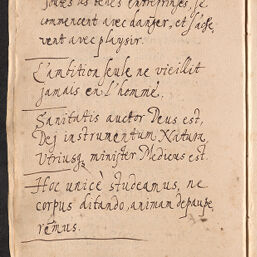 toutes les belles entreprinses, se
commencent avec danger, et s'ache,
vent avec playsir.
L'ambition seule ne vieillit
jamais en l'homme.
Sanitatis auctor Deus est,
Dej instrumentum Natura,
Utriusq minister Medicus est.
Hoc unicè studeamus, ne
corpus ditando, animam depaupe,
remus.